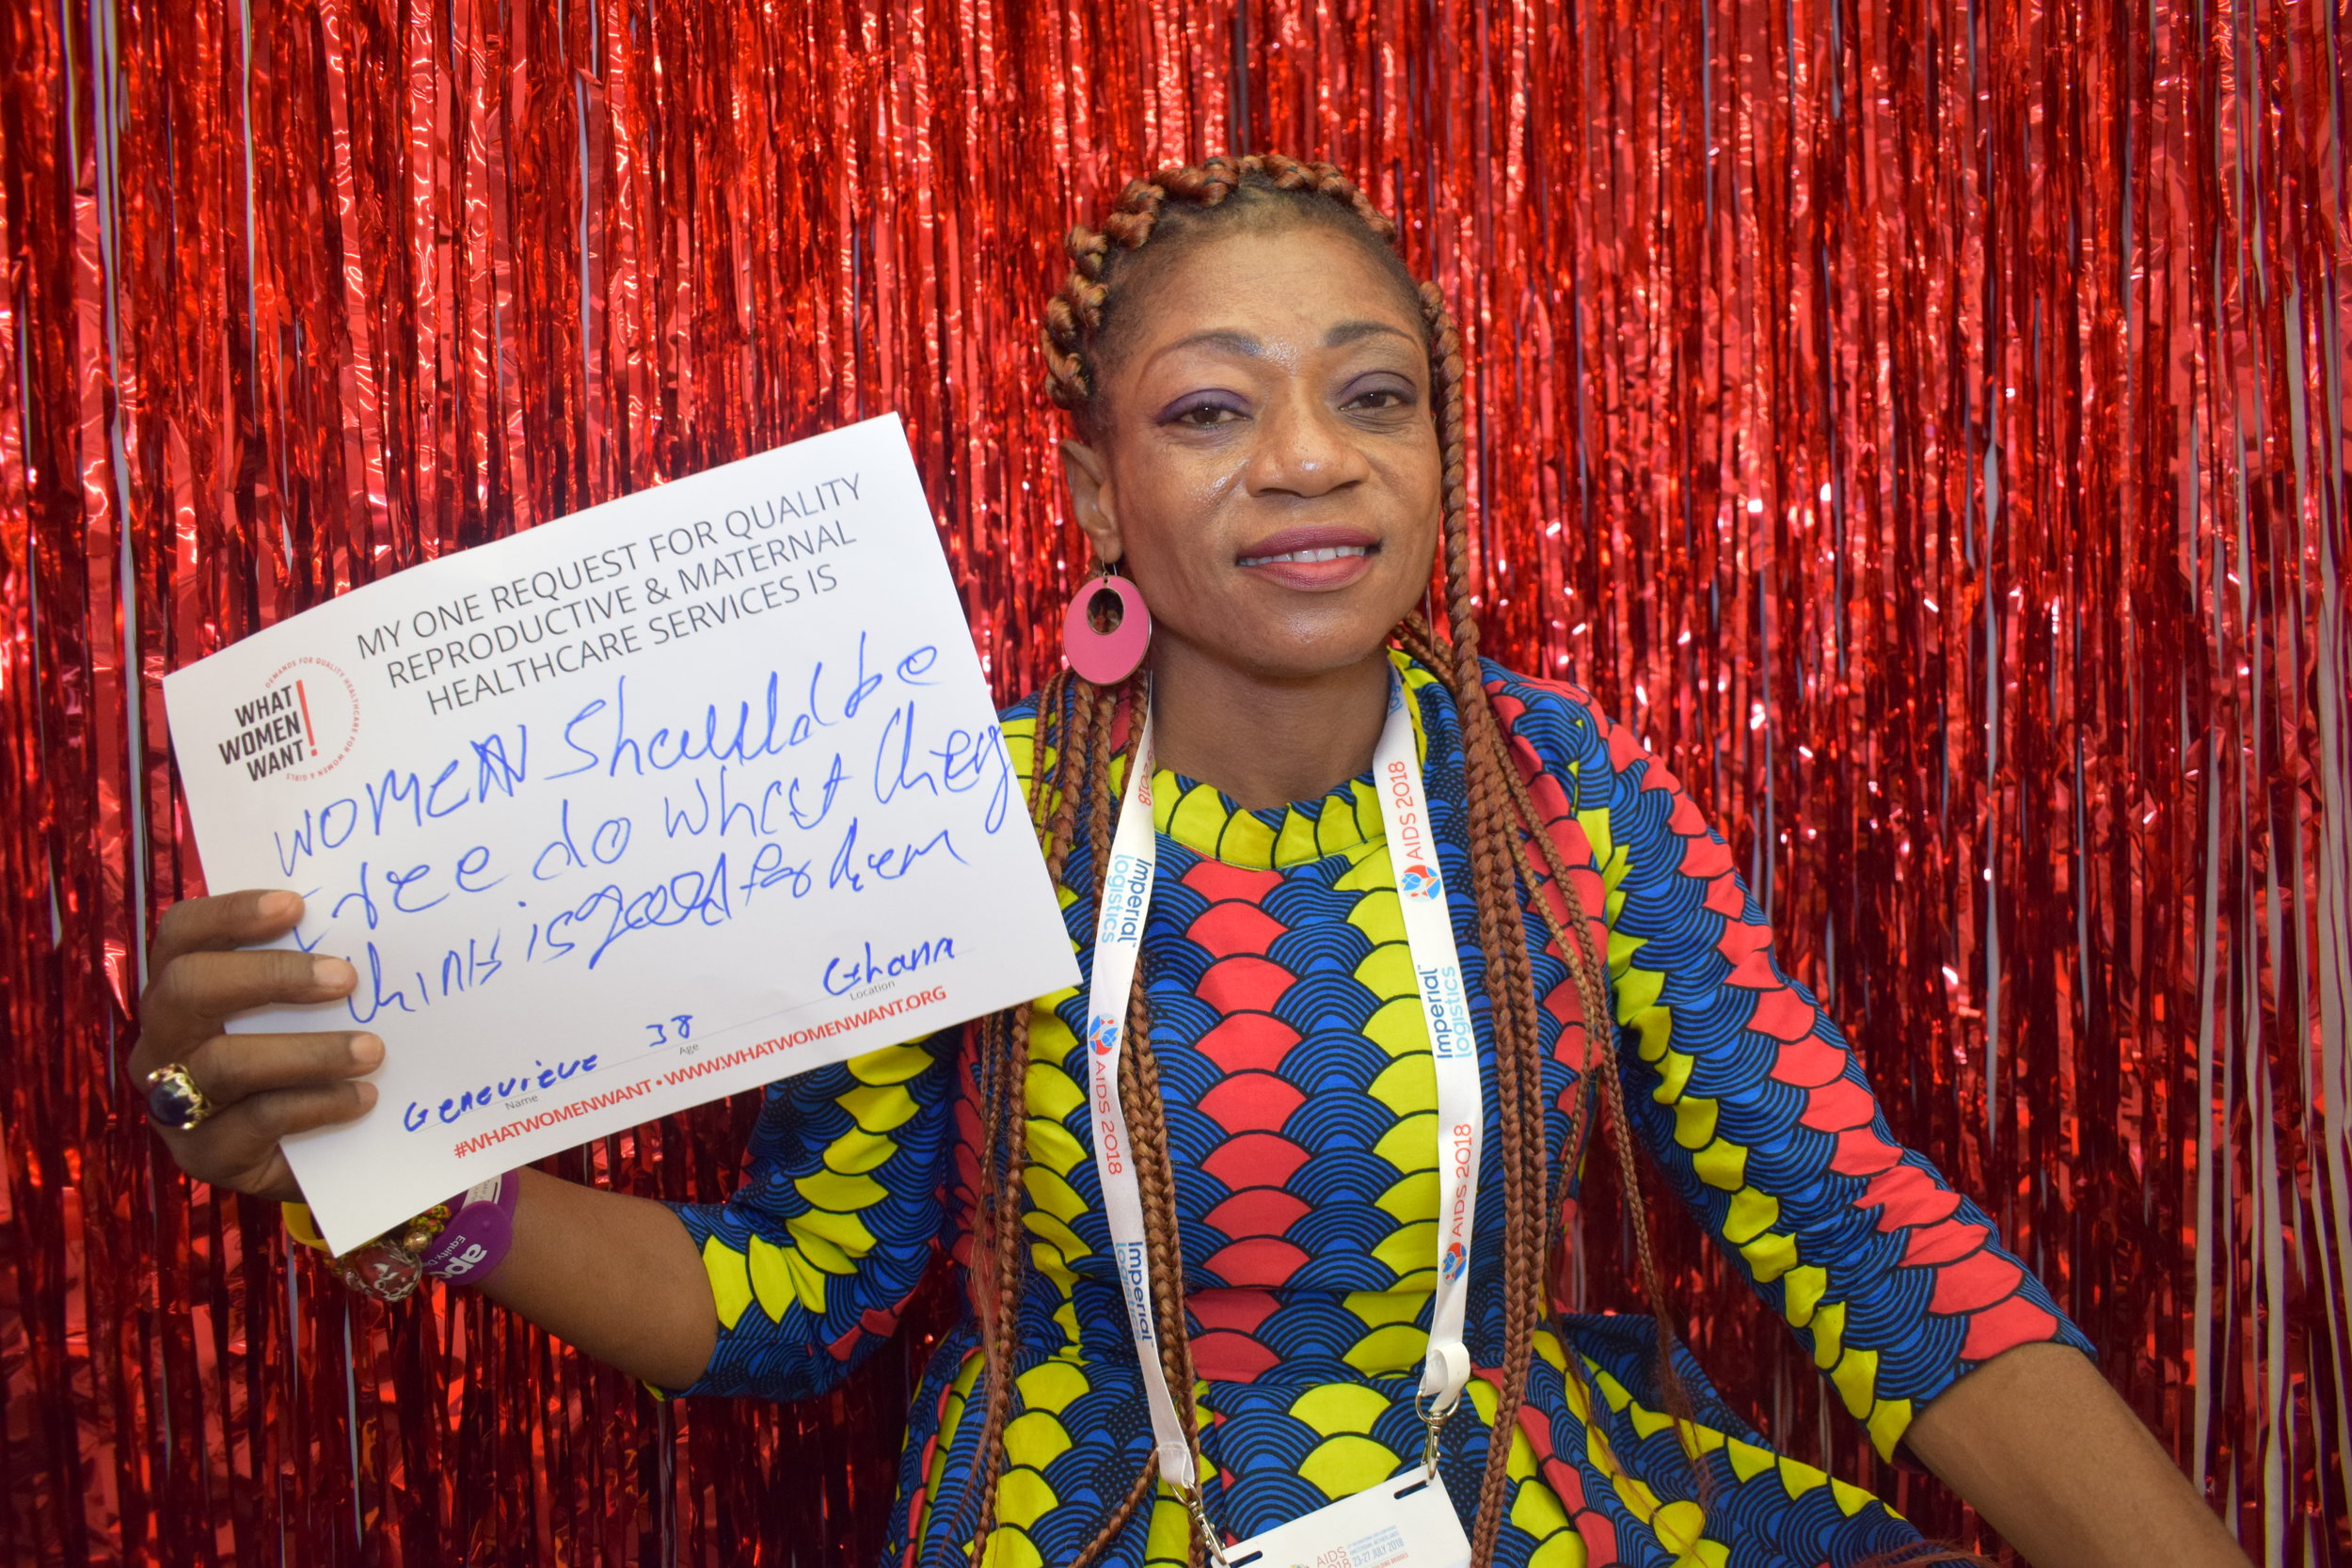 MY ONE REQUEST FOR QUALITY
REPRODUCTIVE & MATERNAL
HEALTHCARE SERVICES IS
DEMANDS FOR QUALITY HEALTHCARE FOR WOMEN & GIRLS
WHAT
WOMEN
WANT!
WOMEN Should be
free do what they
think is good for them
Genevieve
38
Ghana
Name
Age
Location
#WHATWOMENWANT • WWW.WHATWOMENWANT.ORG
2018
Imperial
logistics
AIDS 2018
Imperial
logistics
AIDS 2018
Imperial
logistics
AIDS 2018
Equity
AIDS
2018
23-27 JULY 2018